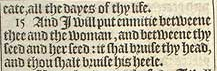 eate, all the dayes of thy life.
15 And I will put enmitie betweene
thee and the woman, and betweene thy
seed and her seed: it shal bruise thy head,
and thou shalt bruise his heele.